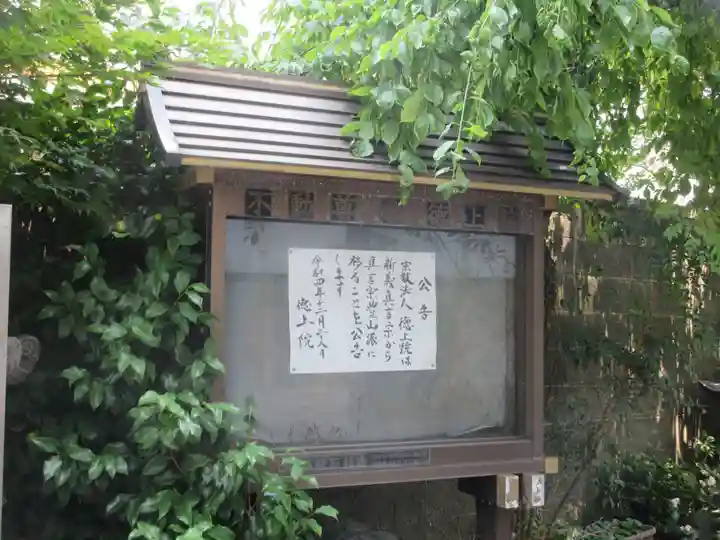 不動尊 徳上院
公告
宗教法人 徳上院は
新義真言宗から
真言宗豊山派に
移ることを公告
します
令和四年十二月
徳上院